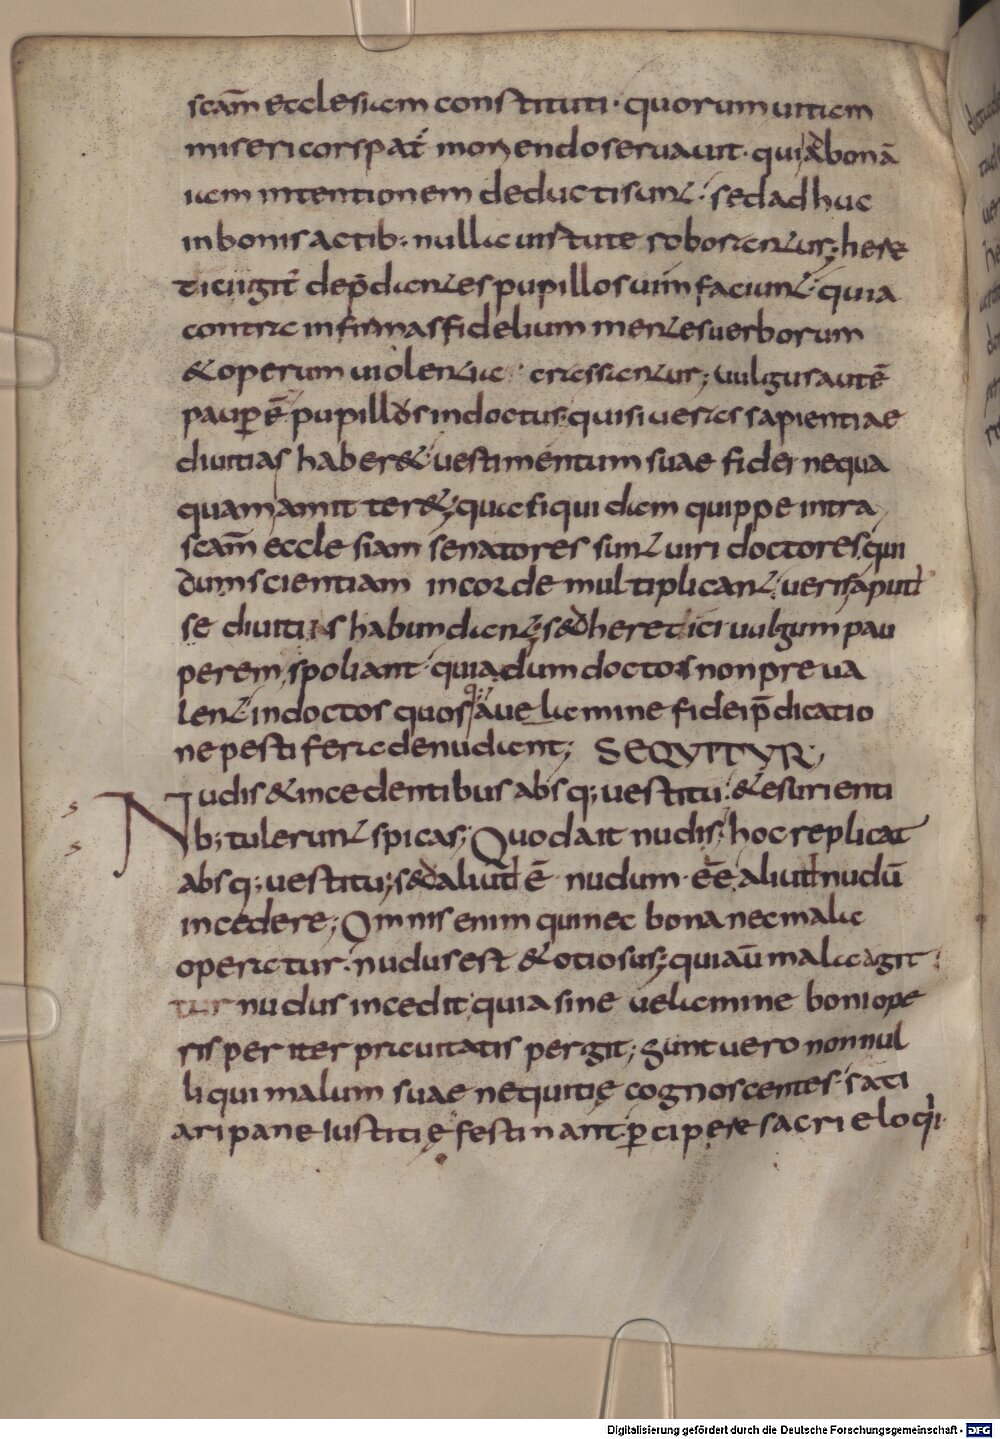 scām ecclesiam constituti · quorum uitam
misericors pat̄ moriendo seruauit · qui ad bonā
iam intentionem deducti sunt · sed adhuc
in bonis actib; nulla uirtute roborantur; here
tici igit̄ dep̄dantes pupillos uim faciunt · quia
contra infirmas fidelium mentes uerborum
& operum uiolentia crassantur; Uulgus autē
paup̱ ē pupillus indoctus qui si ueras sapientiae
diuitias haber& uestimentum suae fidei nequa
quam amitter&; quasi quidam quippe intra
scām ecclesiam senatores sunt uiri doctores qui
dum scientiam in corde multiplicant ueris apud
se diuitiis habundant; sed heretici uulgum pau
perem spoliant · quia dum doctos non preua
lent indoctos quosq; a uelamine fidei p̄dicatio
ne pestifera denudant; SEQUITUR;
Nudis & incedentibus absq; uestitu · & esurienti
b; tulerunt spicas; Quod ait nudis; hoc replicat
absq; uestitu; sed aliud ē nudum · eē aliud nudū
incedere; Omnis enim qui nec bona nec mala
operatur · nudus est & otiosus; qui aū mala agit
tur nudus incedit quia sine uelamine boni ope
ris per iter prauitatis pergit; Sunt uero nonnul
li qui malum suae nequitię cognoscentes · sati
ari pane iustitię festinant · p̱cipere sacri eloqui